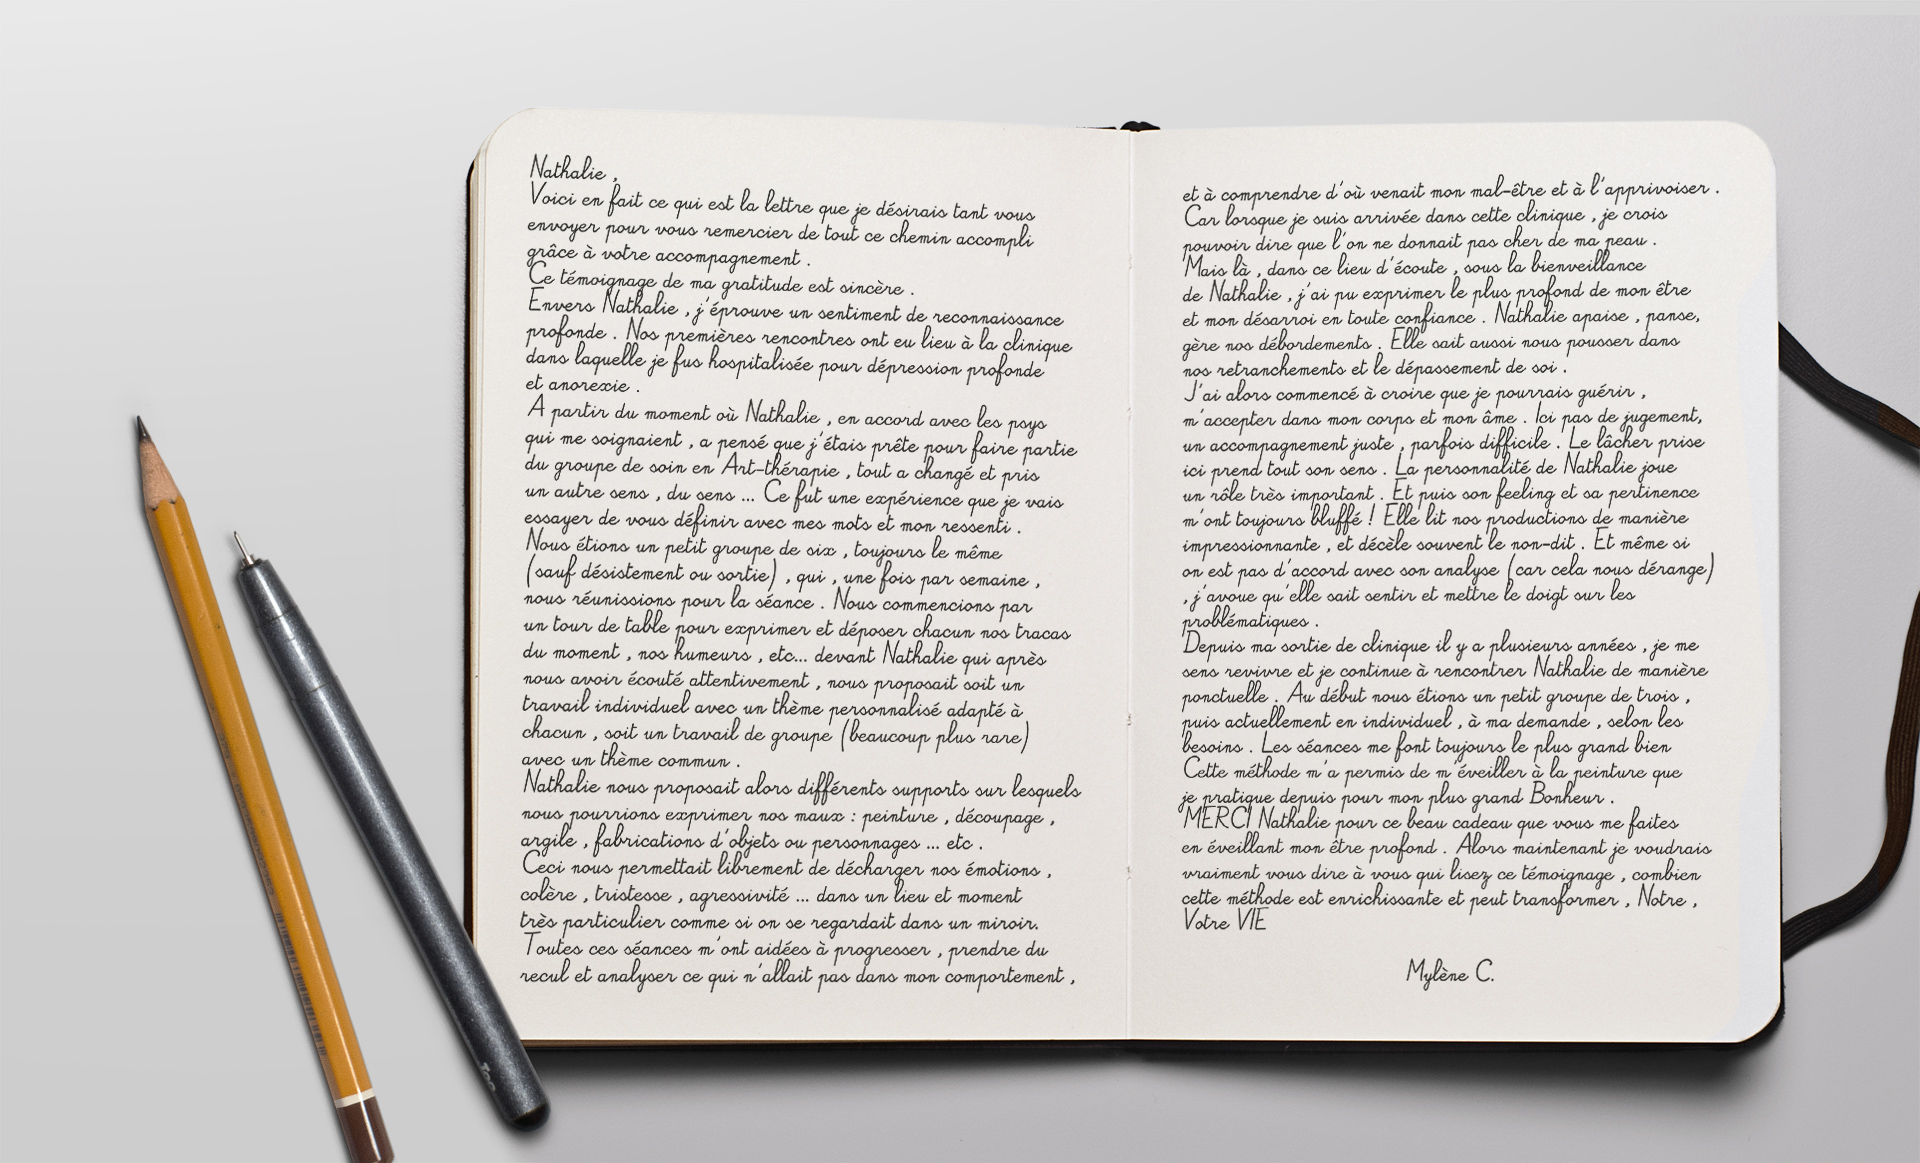 Nathalie ,
Voici en fait ce qui est la lettre que je désirais tant vous
envoyer pour vous remercier de tout ce chemin accompli
grâce à votre accompagnement .
Ce témoignage de ma gratitude est sincère .
Envers Nathalie , j'éprouve un sentiment de reconnaissance
profonde . Nos premières rencontres ont eu lieu à la clinique
dans laquelle je fus hospitalisée pour dépression profonde
et anorexie .
A partir du moment où Nathalie , en accord avec les psys
qui me soignaient , a pensé que j'étais prête pour faire partie
du groupe de soin en Art-thérapie , tout a changé et pris
un autre sens , du sens ... Ce fut une expérience que je vais
essayer de vous définir avec mes mots et mon ressenti .
Nous étions un petit groupe de six , toujours le même
(sauf désistement ou sortie) , qui , une fois par semaine ,
nous réunissions pour la séance . Nous commencions par
un tour de table pour exprimer et déposer chacun nos tracas
du moment , nos humeurs , etc... devant Nathalie qui après
nous avoir écouté attentivement , nous proposait soit un
travail individuel avec un thème personnalisé adapté à
chacun , soit un travail de groupe (beaucoup plus rare)
avec un thème commun .
Nathalie nous proposait alors différents supports sur lesquels
nous pourrions exprimer nos maux : peinture , découpage ,
argile , fabrications d'objets ou personnages ... etc .
Ceci nous permettait librement de décharger nos émotions ,
colère , tristesse , agressivité ... dans un lieu et moment
très particulier comme si on se regardait dans un miroir.
Toutes ces séances m'ont aidées à progresser , prendre du
recul et analyser ce qui n'allait pas dans mon comportement ,
et à comprendre d'où venait mon mal-être et à l'apprivoiser .
Car lorsque je suis arrivée dans cette clinique , je crois
pouvoir dire que l'on ne donnait pas cher de ma peau .
Mais là , dans ce lieu d'écoute , sous la bienveillance
de Nathalie , j'ai pu exprimer le plus profond de mon être
et mon désarroi en toute confiance . Nathalie apaise , panse,
gère nos débordements . Elle sait aussi nous pousser dans
nos retranchements et le dépassement de soi .
J'ai alors commencé à croire que je pourrais guérir ,
m'accepter dans mon corps et mon âme . Ici pas de jugement,
un accompagnement juste , parfois difficile . Le lâcher prise
ici prend tout son sens . La personnalité de Nathalie joue
un rôle très important . Et puis son feeling et sa pertinence
m'ont toujours bluffé ! Elle lit nos productions de manière
impressionnante , et décèle souvent le non-dit . Et même si
on est pas d'accord avec son analyse (car cela nous dérange)
, j'avoue qu'elle sait sentir et mettre le doigt sur les
problématiques .
Depuis ma sortie de clinique il y a plusieurs années , je me
sens revivre et je continue à rencontrer Nathalie de manière
ponctuelle . Au début nous étions un petit groupe de trois ,
puis actuellement en individuel , à ma demande , selon les
besoins . Les séances me font toujours le plus grand bien
Cette méthode m'a permis de m'éveiller à la peinture que
je pratique depuis pour mon plus grand Bonheur .
MERCI Nathalie pour ce beau cadeau que vous me faites
en éveillant mon être profond . Alors maintenant je voudrais
vraiment vous dire à vous qui lisez ce témoignage , combien
cette méthode est enrichissante et peut transformer , Notre ,
Votre VIE
Mylène C.